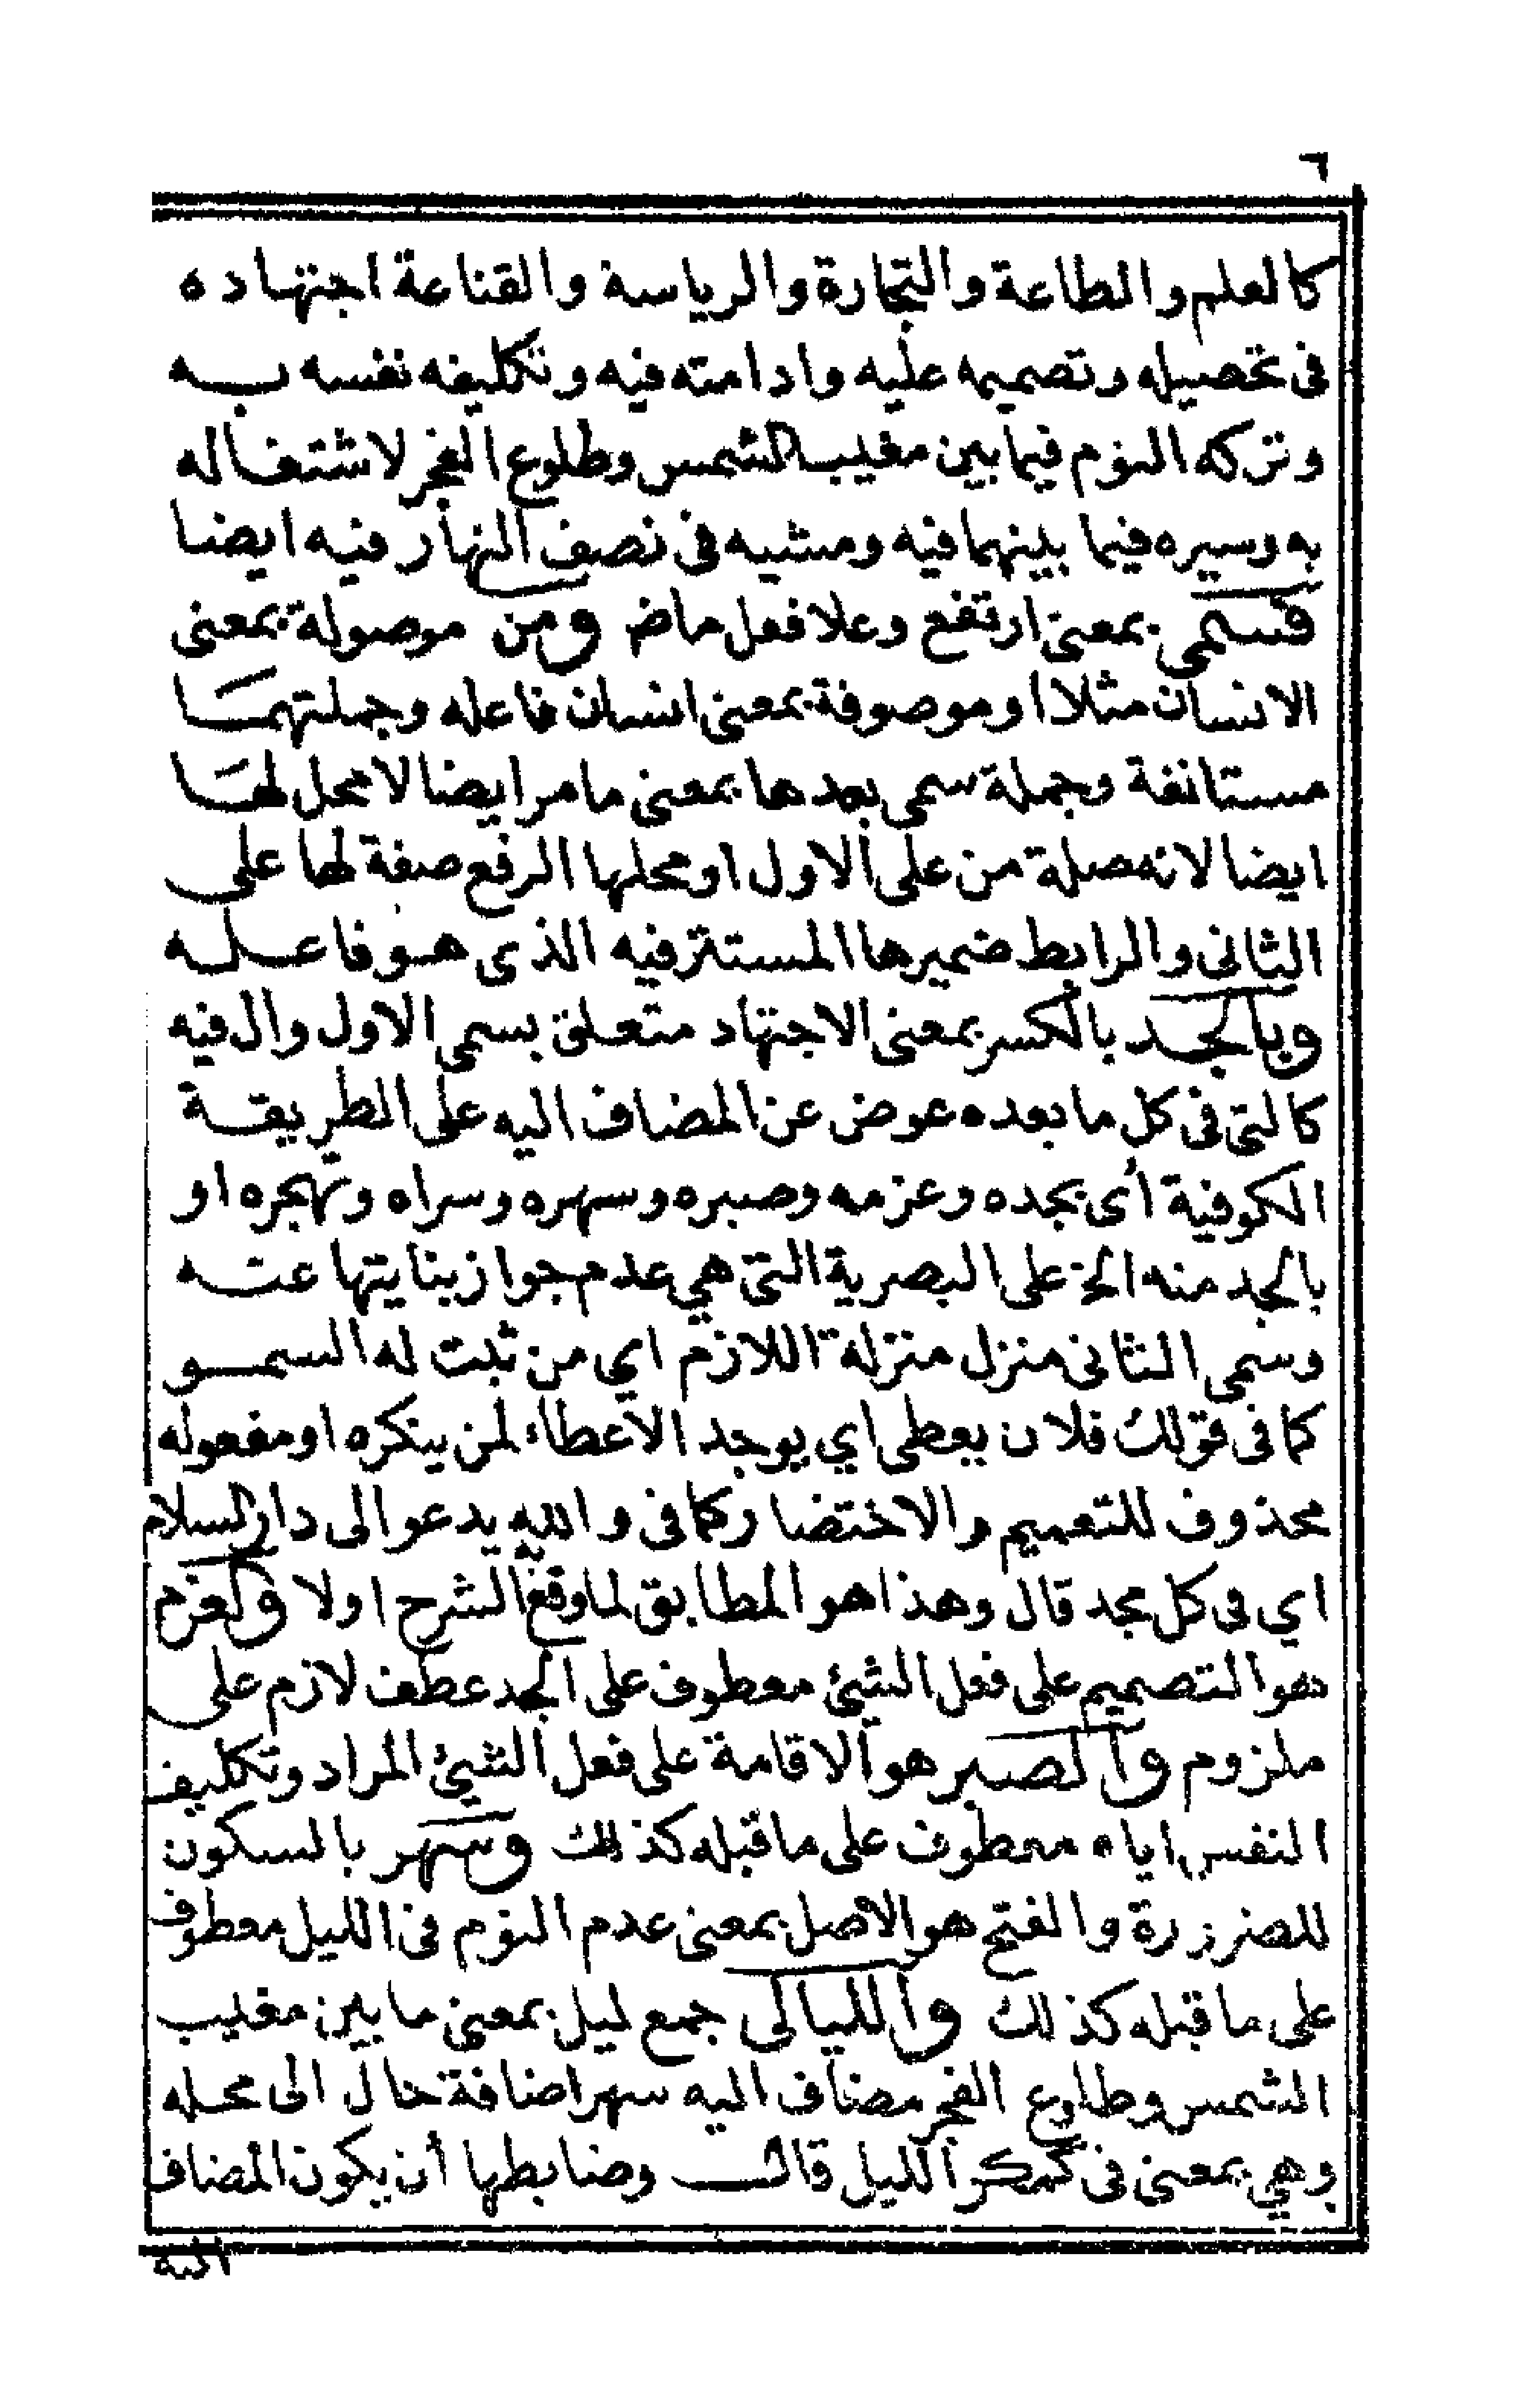 ٦
كالعلم والطاعة والتجارة والرياسة والقناعة اجتهاده
فى تحصيله وتصميمه عليه وادامته فيه وتكليفه نفسه به
وتركه النوم فيما بين مغيب الشمس وطلوع الفجر لاشتغاله
به وسيره فيما بينهما فيه ومشيه فى نصف النهار فيه ايضا
فسمى بمعنى ارتفع وعلا فعل ماض ومن موصولة بمعنى
الانسان مثلا او موصوفة بمعنى انسان فاعله وجملتهما
مستانفة وجملة سمى بعدها بمعنى ما مر ايضا لا محل لها
ايضا لانه صلة من على الاول او محلها الرفع صفة لها على
الثانى والرابط ضميرها المستتر فيه الذى هو فاعله
وبالجد بالكسر بمعنى الاجتهاد متعلق بسمى الاول وال فيه
كالتى فى كل ما بعده عوض عن المضاف اليه على الطريقة
الكوفية أى بجده وعزمه وصبره وسهره وسراه وتهجره او
بالجد منه الخ على البصرية التى هي عدم جواز بنايتها عنه
وسمى الثانى منزل منزلة اللازم اي من ثبت له السمو
كما فى قولك فلان يعطى اي يوجد الاعطاء لمن ينكره او مفعوله
محذوف للتعميم والاختضار كما فى والله يدعو الى دار السلام
اي فى كل مجد قال وهذا هو المطابق لما وقع الشرح اولا والعزم
هو التصميم على فعل الشيئ معطوف على الجد عطف لازم على
ملزوم والصبر هو الاقامة على فعل الشيئ المراد وتكليف
النفس اياه معطوف على ما قبله كذلك وسهر بالسكون
للضرررة والفتح هو الاصل بمعنى عدم النوم فى الليل معطوف
على ما قبله كذلك والليالى جمع ليل بمعنى ما بين مغيب
الشمس وطلوع الفجر مضاف اليه سهر اضافة حال الى محله
وهي بمعنى فى كمكر الليل قال وضابطها أن يكون المضاف
اليه